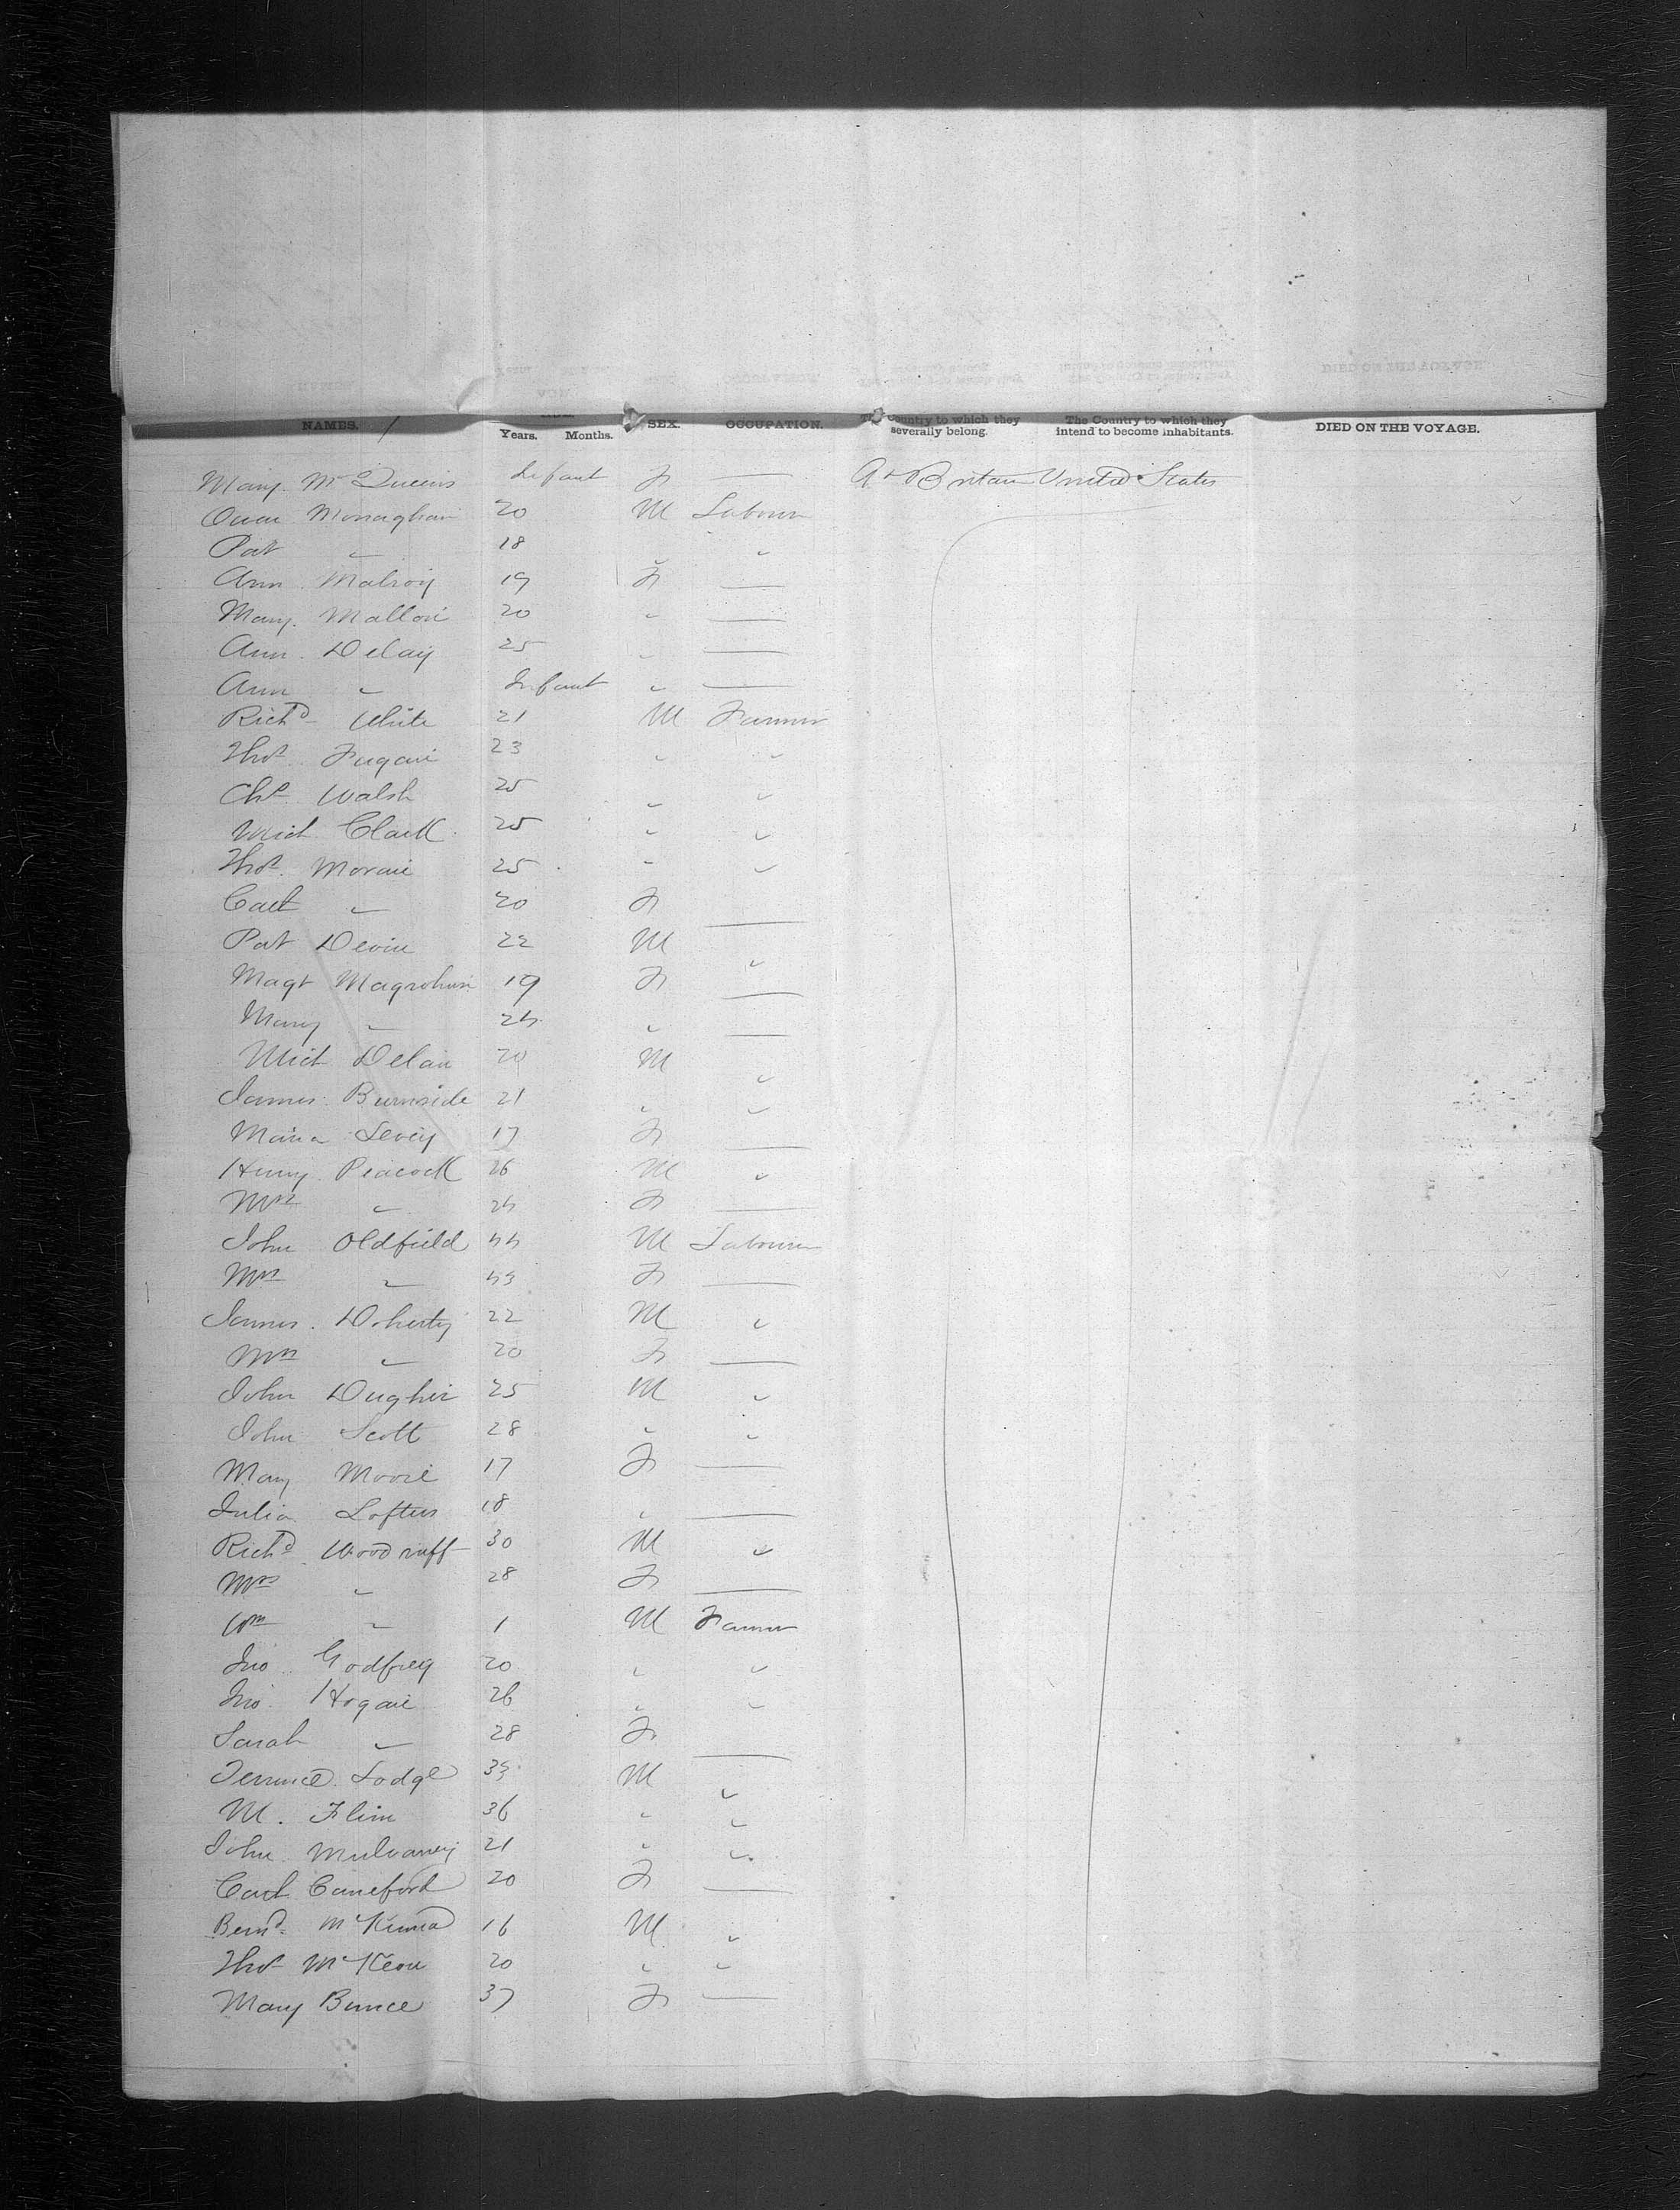 NAMES. Years. Months. SEX. OCCUPATION. The Country to which they severally belong. The Country to which they intend to become inhabitants. DIED ON THE VOYAGE.
Mary McQueens Infant F — Gt Britain United States
Owen Monaghan 20 M Labourer
Pat " 18 " "
Ann Malroy 19 F —
Mary Mallon 20 " —
Ann Delay 25 " —
Ann " Infant " —
Richd White 21 M Farmer
Thos Fugan 23 " "
Chs Walsh 25 " "
Mich Clark 25 " "
Thos Moran 25 " "
Cath " 20 F —
Pat Devin 22 M "
Magt Magrohan 19 F —
Mary " 24 " —
Mich Delan 20 M "
James Burnside 21 " "
Maria Levey 17 F —
Henry Peacock 26 M "
Mrs " 24 F —
John Oldfield 44 M Labourer
Mrs " 43 F —
James Doherty 22 M "
Mrs " 20 F —
John Dugher 25 M "
John Scott 28 " "
Mary Moore 17 F —
Julia Loftus 18 " —
Richd Woodruff 30 M "
Mrs " 28 F —
Wm " 1 M Farmer
Jno Godfrey 20 " "
Jno Hogan 26 " "
Sarah " 28 F —
Terrence Lodge 33 M "
M. Flinn 36 " "
John Mulvaney 21 " "
Cath Caneford 20 F —
Bernd McKenna 16 M "
Thos McKeon 20 " "
Mary Bunce 37 F —